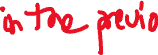 in the previo